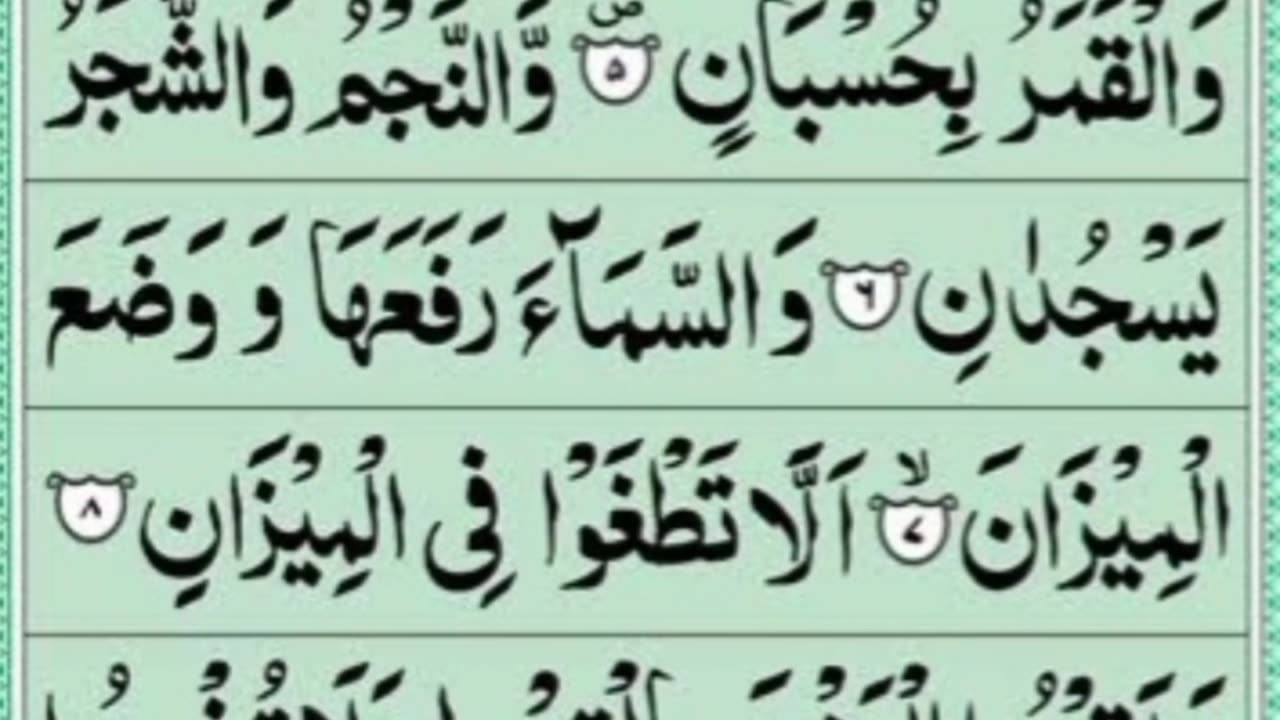 وَالْقَمَرُ بِحُسْبَانٍ ۵ ص وَّالنَّجْمُ وَالشَّجَرُ
يَسْجُدٰنِ ۶ وَالسَّمَآءَ رَفَعَهَا وَ وَضَعَ
الْمِيْزَانَ ۷ لا اَلَّا تَطْغَوْا فِى الْمِيْزَانِ ۸